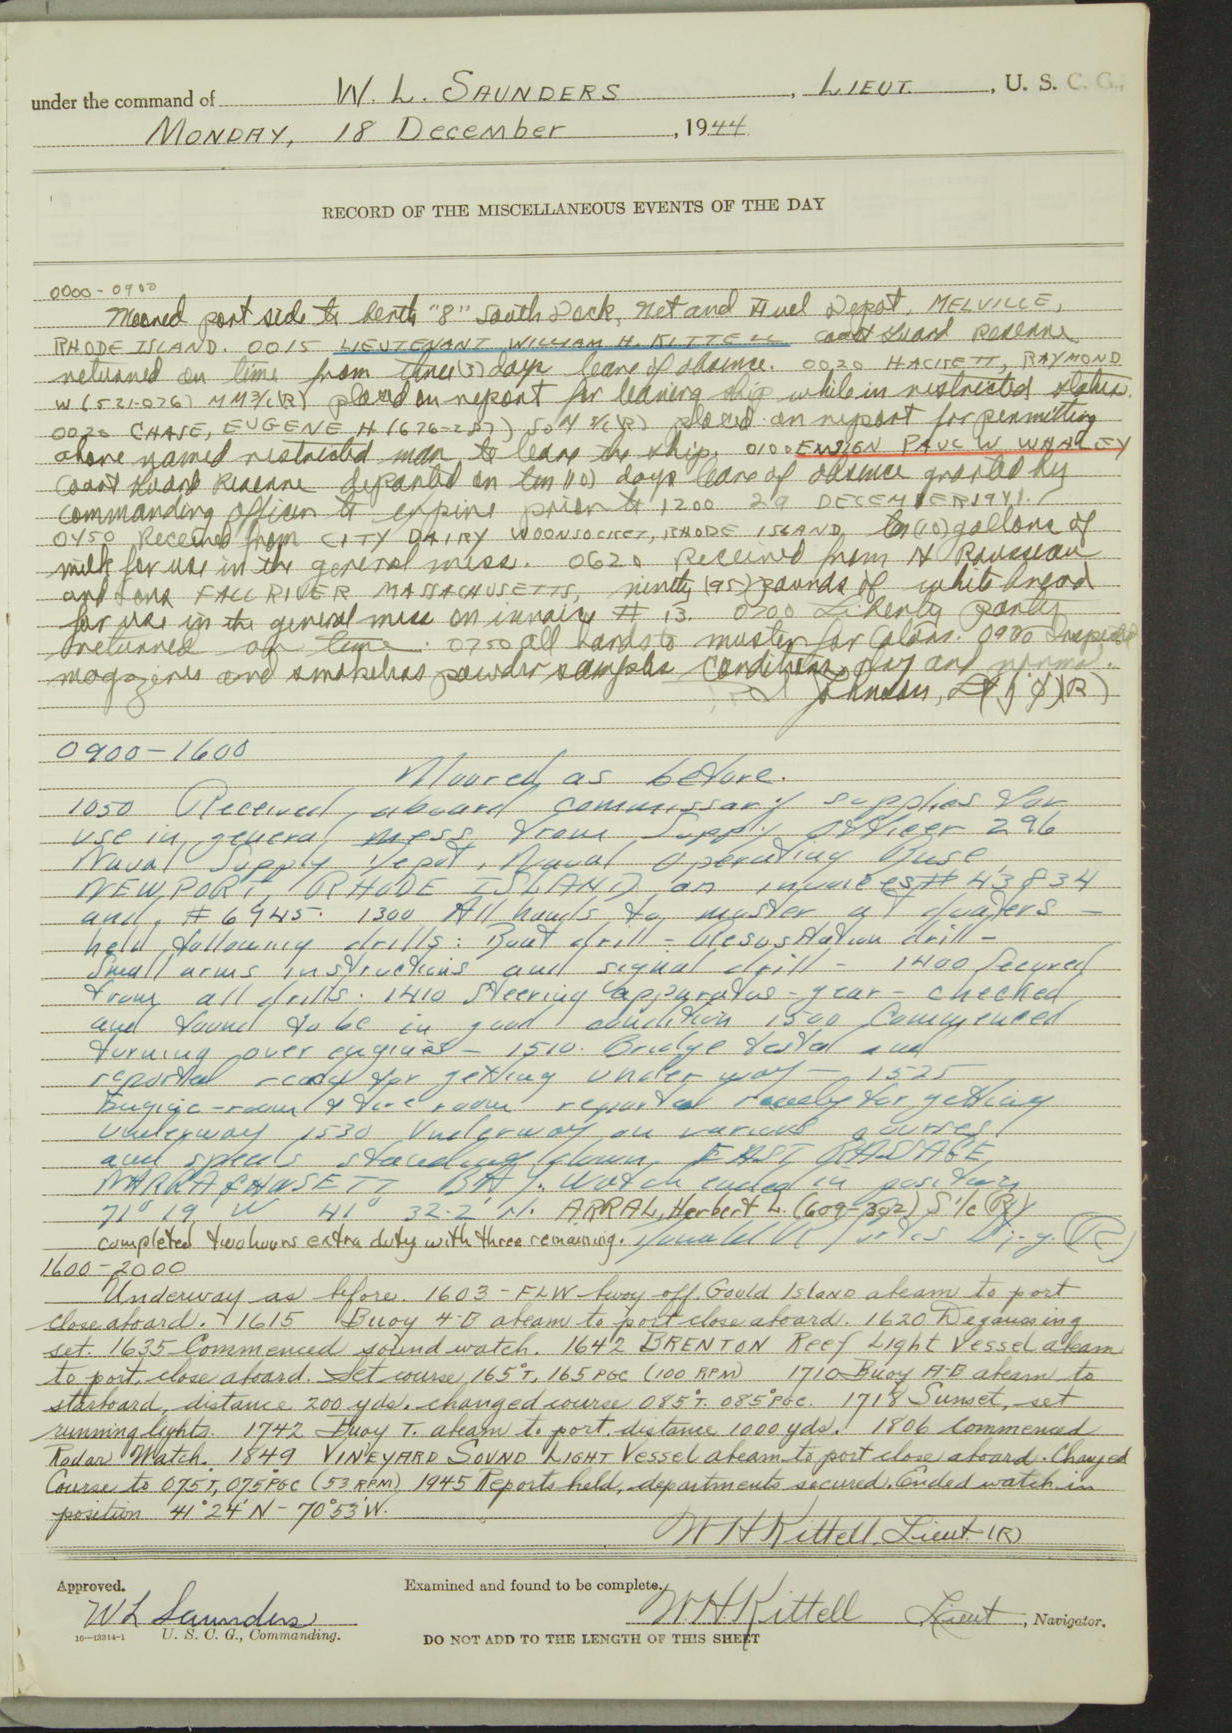 under the command of W. L. SAUNDERS, LIEUT., U. S. C. G.,
MONDAY, 18 December, 1944
RECORD OF THE MISCELLANEOUS EVENTS OF THE DAY
0000 - 0900
Moored port side to berth "8" South Dock, Net and Fuel Depot, MELVILLE,
RHODE ISLAND. 0015 LIEUTENANT WILLIAM H. KITTELL Coast Guard Reserve
returned on time from three (3) days leave of absence. 0020 HACKETT, RAYMOND
W (521-026) MM3/c(R) placed on report for leaving ship while in restricted status.
0020 CHASE, EUGENE H (626-287) placed on report for permitting
above named restricted man to leave the ship. 0100 ENSIGN PAUL W WHALEY
Coast Guard Reserve departed on ten (10) days leave of absence granted by
commanding officer to expire prior to 1200 29 DECEMBER
0450 Received from CITY DAIRY WOONSOCKET, RHODE ISLAND, ten (10) gallons of
milk for use in the general mess. 0620 Received from A Rousseau
and sons FALL RIVER MASSACHUSETTS, ninety (95) pounds of white bread
for use in the general mess on invoice # 13. 0700 Liberty party
returned on time. 0750 all hands to muster for colors. 0900 Inspected
magazines and smokeless powder samples conditions dry and normal.
Johnson, Lt(jg)(R)
0900 - 1600
Moored as before.
1050 Received aboard commissary supplies for
use in general mess from Supply Officer 296
Naval Supply Depot, Naval Operating Base
NEWPORT RHODE ISLAND on invoices # 43834
and # 6945. 1300 All hands to muster at quaters -
held following drills: Boat drill - Resusitation drill -
Small arms instructions and signal drill - 1400 Secured
from all drills. 1410 Steering apparatus - gear - checked
and found to be in good condition 1500 Commenced
turning over engines - 1510. Bridge tested and
reported ready for getting under way - 1525
Engine-room & fire room reported ready for getting
underway 1530 Underway on various courses
and speeds standing down EAST PASSAGE
NARRAGANSETT BAY. Watch ended in position
71° 19' W 41° 32.2' N. ARRAL, Herbert L. (609-302) S 1/c (R)
completed two hours extra duty with three remaining. Lt. j. g. (R)
1600 - 2000
Underway as before. 1603 - FLW buoy off Gould Island abeam to port
close aboard. 1615 Buoy 4-B abeam to port close aboard. 1620 Degaussing
set. 1635 Commenced sound watch. 1642 BRENTON Reef Light Vessel abeam
to port, close aboard. Set course 165°T, 165 PGC (100 RPM) 1710 Buoy A-B abeam to
starboard, distance 200 yds. changed course 085°T. 085°PGC. 1718 Sunset, set
running lights. 1742 Buoy T. abeam to port. distance 1000 yds. 1806 Commenced
Radar Watch. 1849 VINEYARD SOUND LIGHT Vessel abeam to port close aboard. Changed
Course to 075T, 075°PGC (53 RPM) 1945 Reports held, departments secured. Ended watch in
position 41° 24' N - 70° 53' W.
W H Kittell, Lieut. (R)
Approved.
Examined and found to be complete.
W L Saunders
W. H. Kittell Lieut, Navigator.
16-13314-1 U. S. C. G., Commanding.
DO NOT ADD TO THE LENGTH OF THIS SHEET